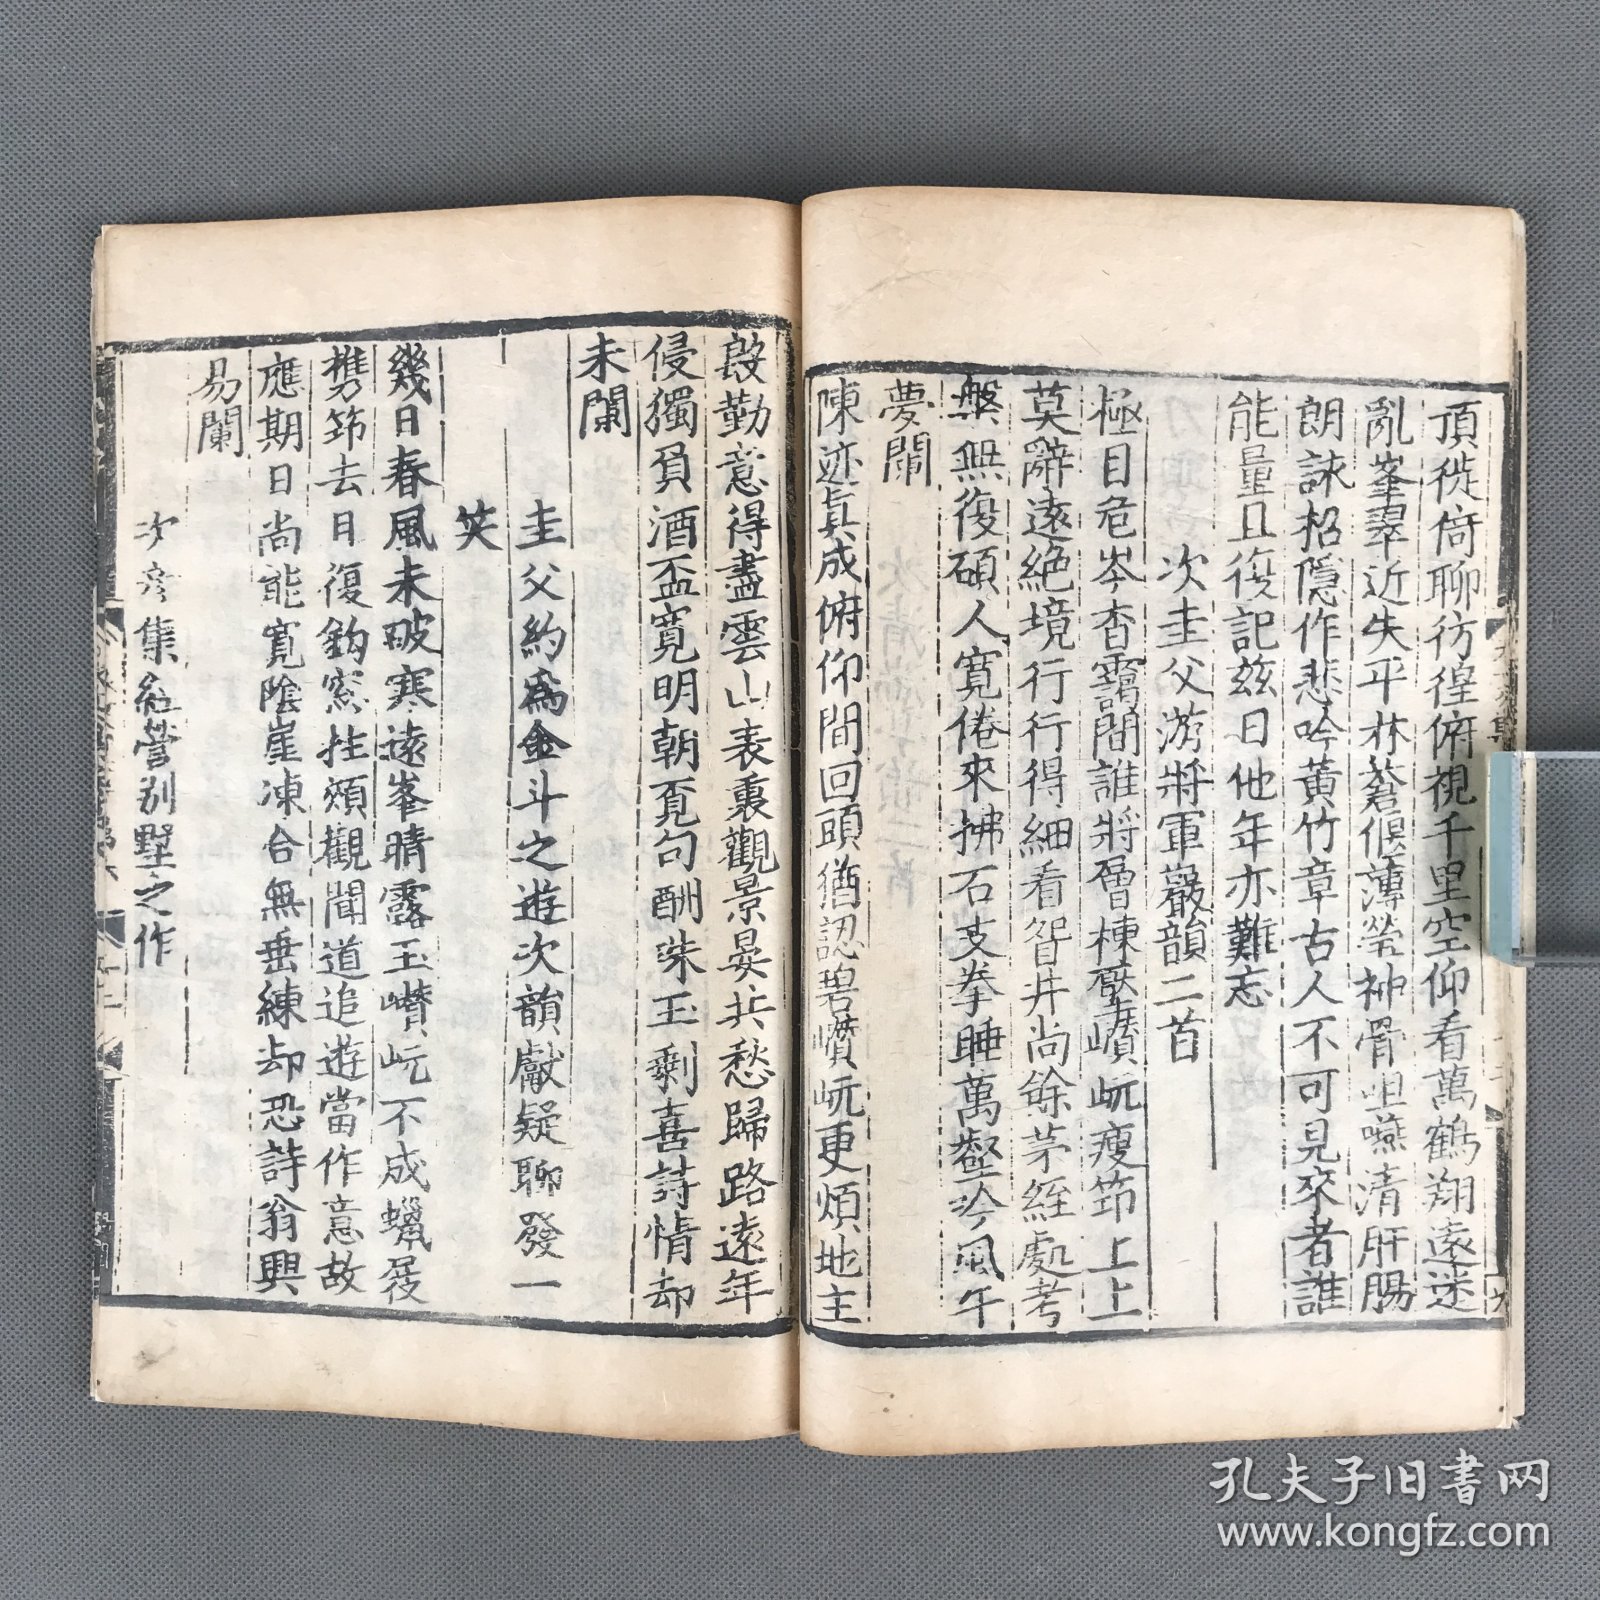 頂徙倚聊彷徨俯視千里空仰看萬鶴翔遠迷
亂峯翠近失平林蒼偃薄瑩神骨咀嚥清肝腸
朗誦招隱作悲吟黃竹章古人不可見來者誰
能量且復記兹日他年亦難忘
次圭父游將軍巖韻二首
極目危岑杳靄間誰將層棟壓巑岏瘦筇上上
莫辭遠絕境行行得細看眢井尚餘茅絰處考
槃無復碩人寬倦來拂石支拳睡萬壑吟風午
夢閒
陳迹真成俯仰間回頭猶認碧巑岏更煩地主
殷勤意得盡雲山表裏觀景晏兵愁歸路遠年
侵獨負酒盃寬明朝覓句酬珠玉剩喜詩情却
未闌
圭父約為金斗之遊次韻獻疑聊發一
笑
幾日春風未破寒遠峯晴露玉巑岏不成蠟屐
攜筇去且復鈎窓拄頰觀聞道追遊當作意故
應期日尚能寬陰崖凍合無垂練却恐詩翁興
易闌
次彥集紅營別墅之作
孔夫子旧书网
www.kongfz.com